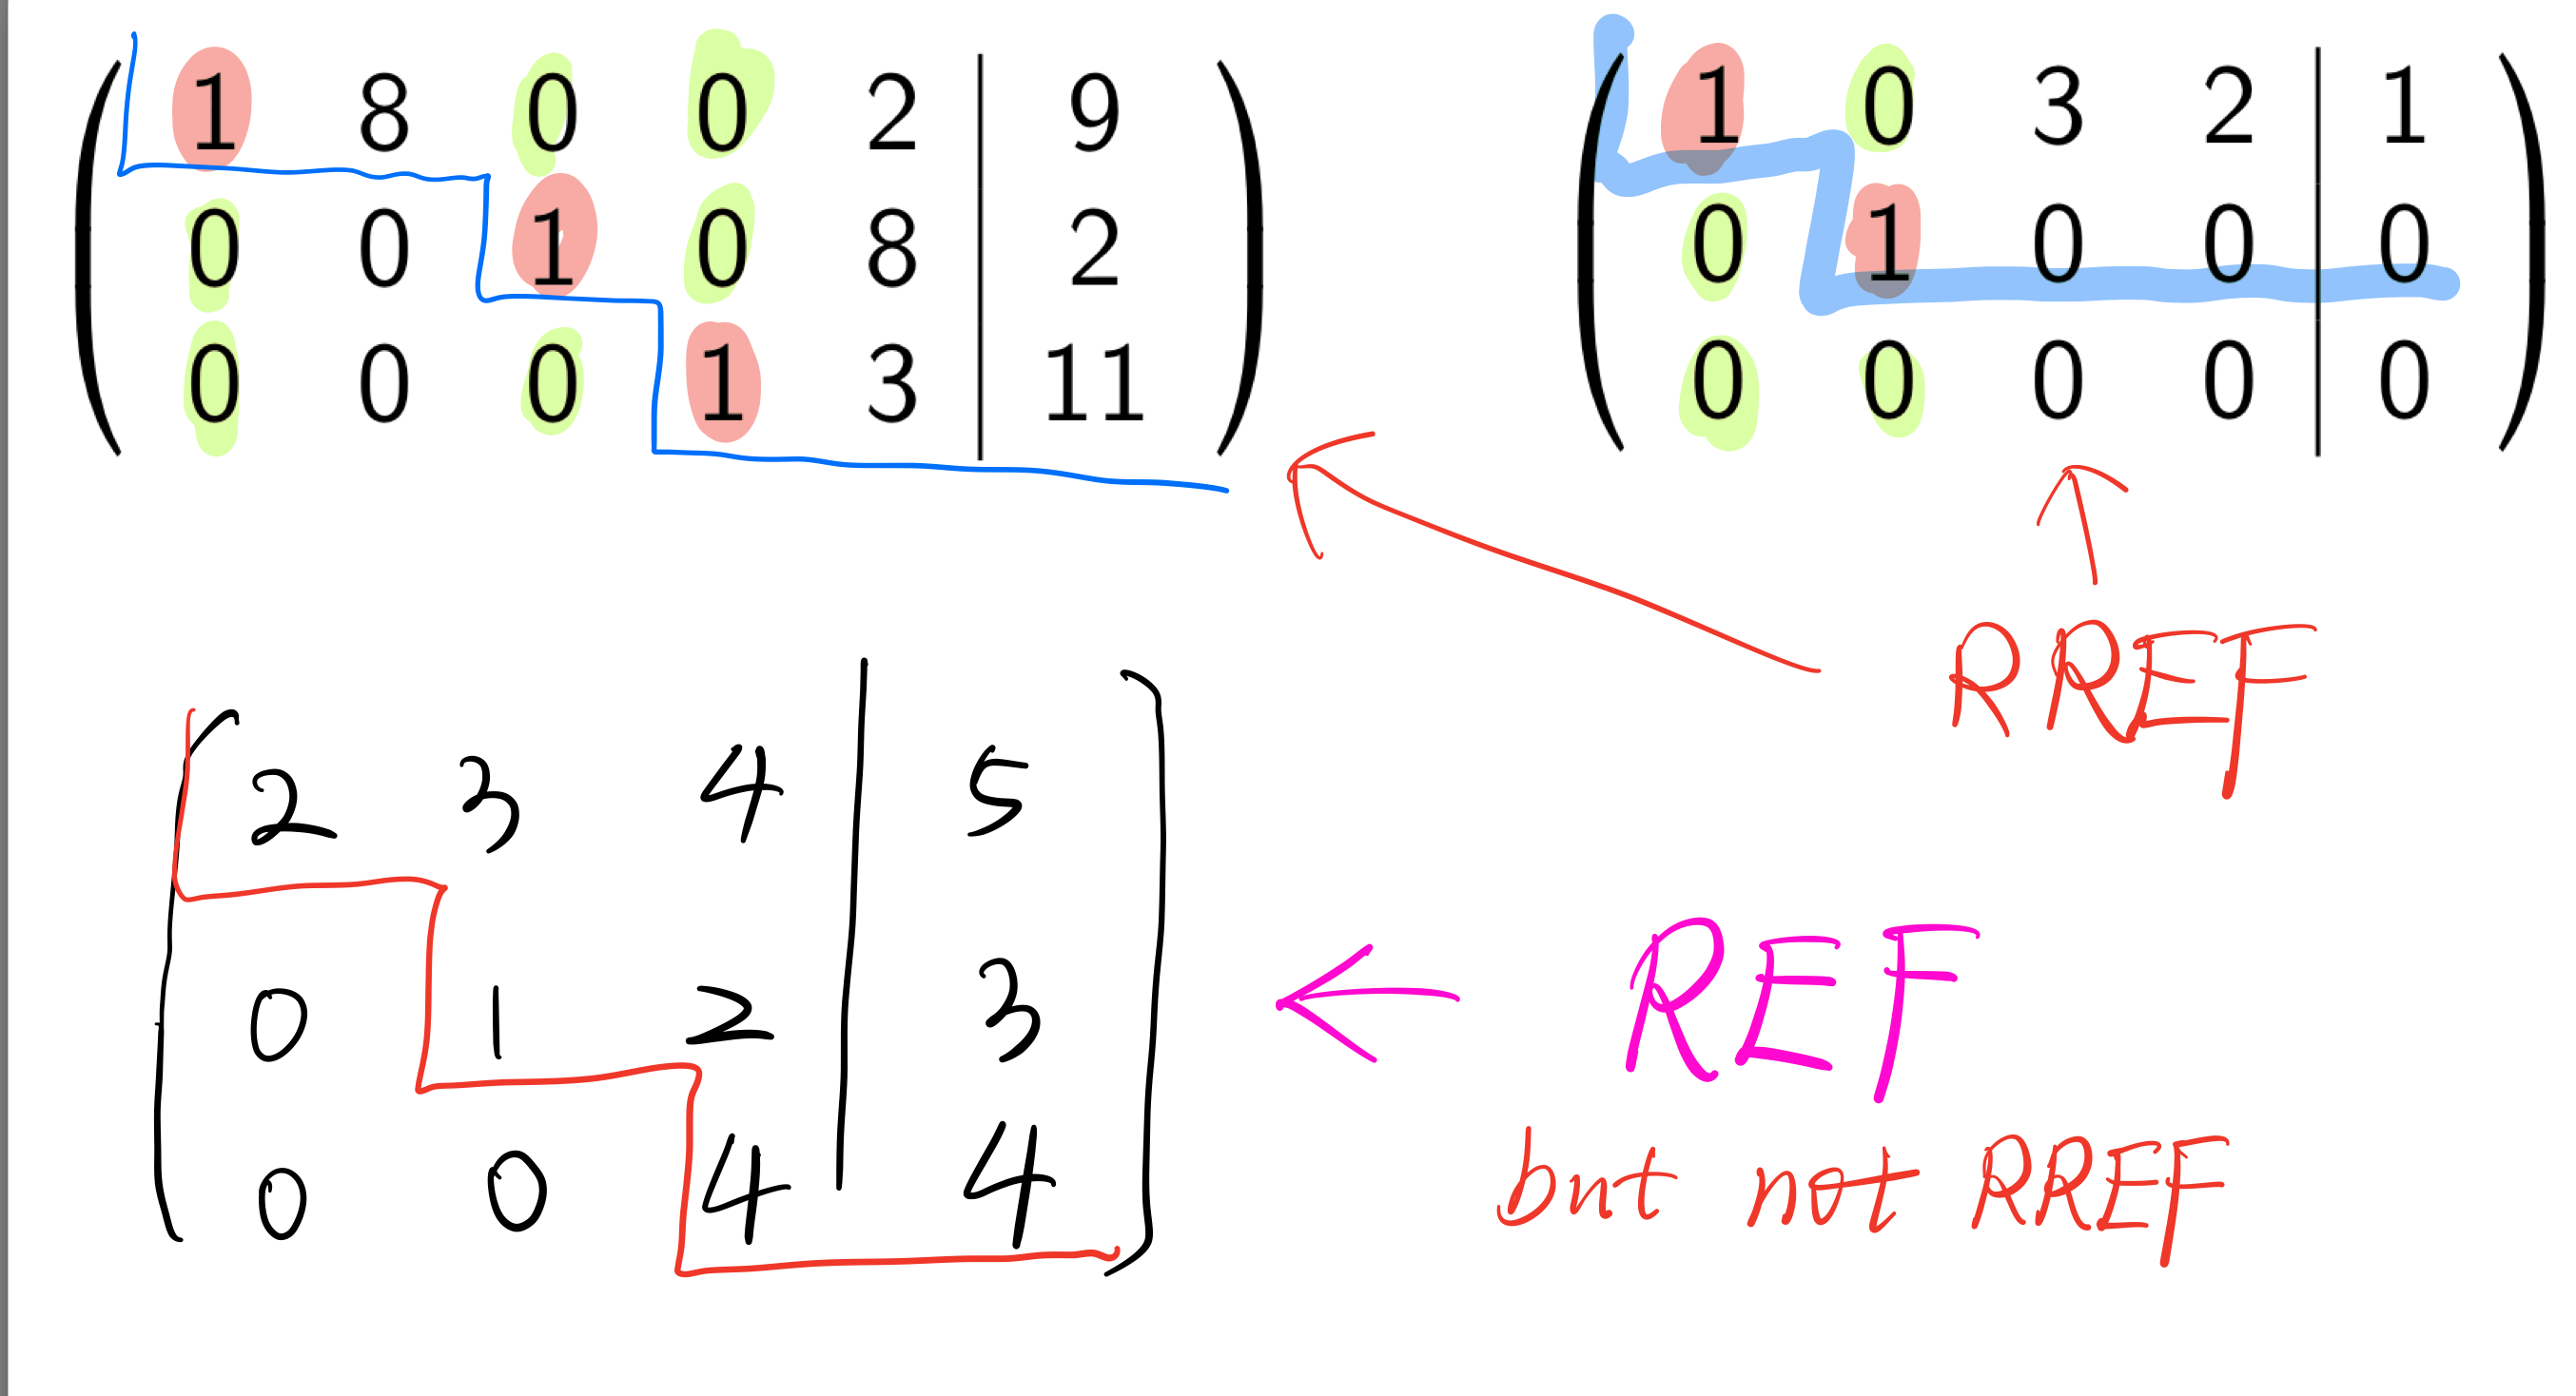 1 8 0 0 2 | 9
0 0 1 0 8 | 2
0 0 0 1 3 | 11
1 0 3 2 | 1
0 1 0 0 | 0
0 0 0 0 | 0
RREF
2 3 4 | 5
0 1 2 | 3
0 0 4 | 4
REF
but not RREF